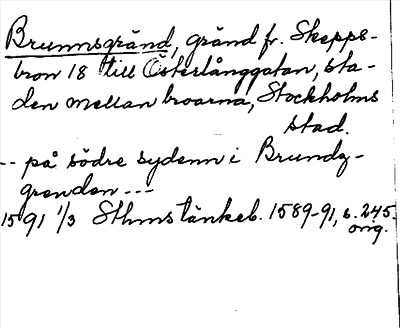 Brunnsgränd, gränd fr. Skepps-
bron 18 till Österlånggatan, sta-
den mellan broarna, Stockholms
stad.
-- på södre sydenn i Brundz-
grenden ---
1591 1/3 Sthms tänkeb. 1589-91, s. 245.
orig.